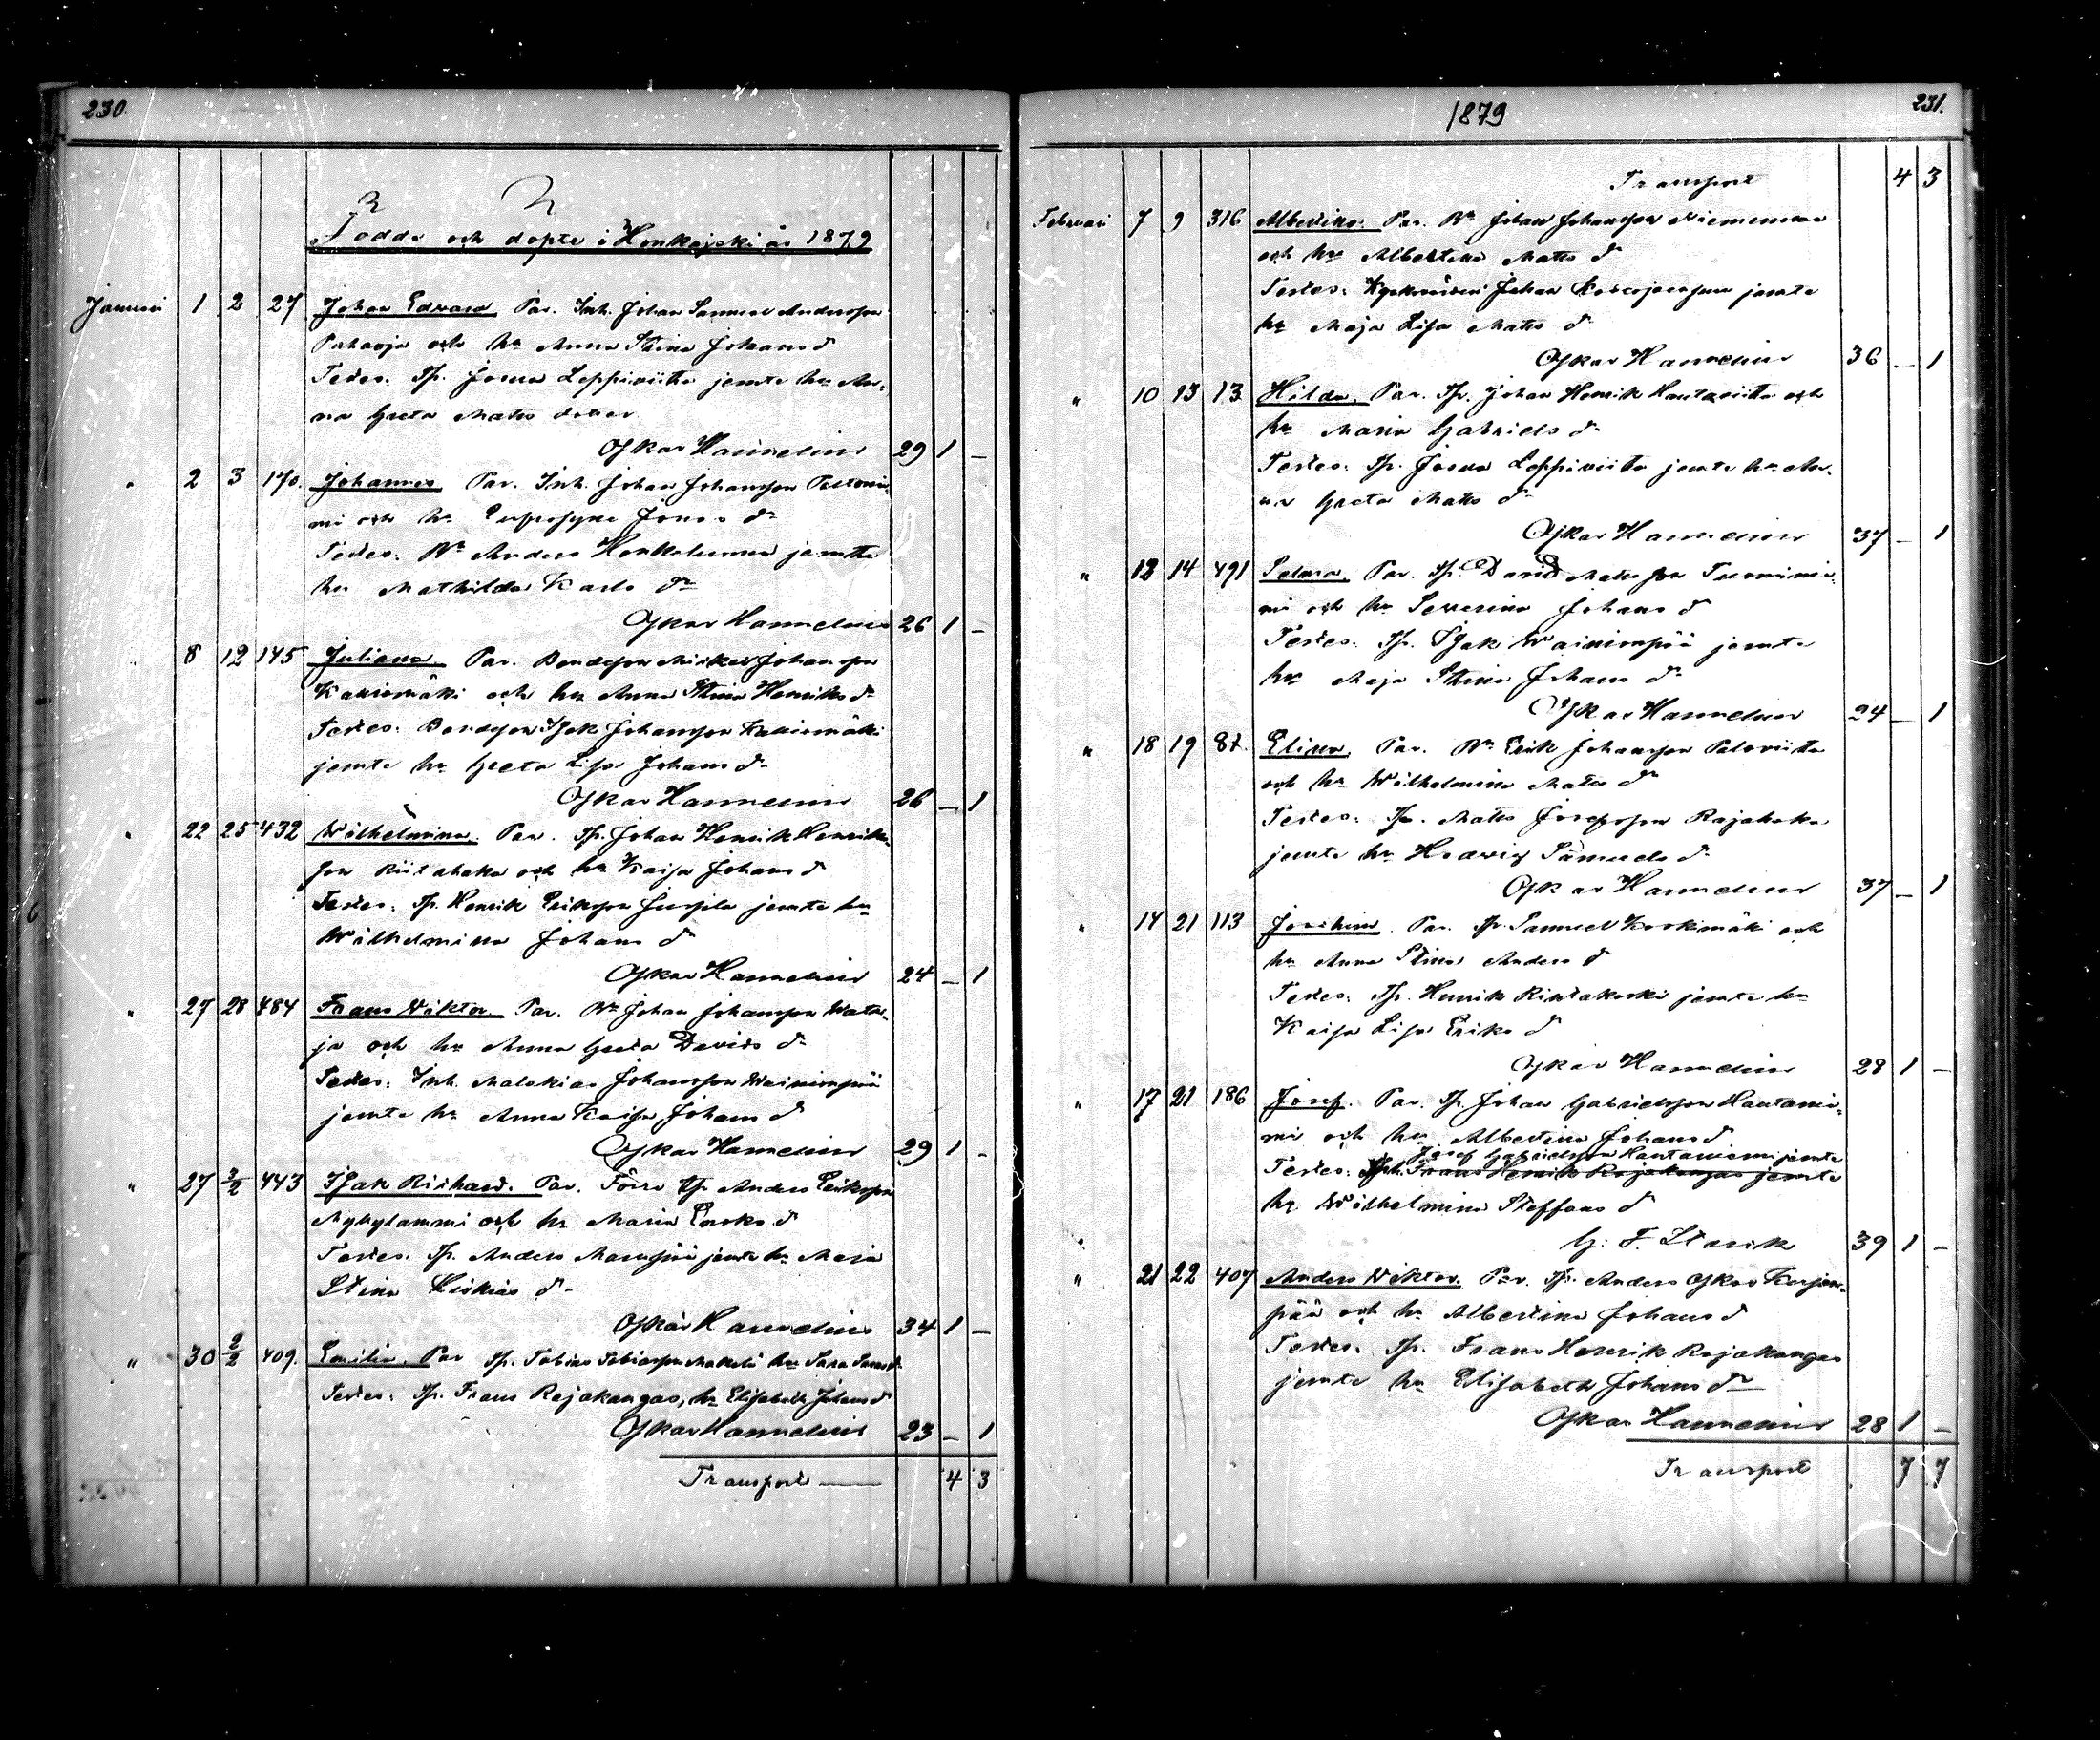 230.
Födde och döpte i Honkajoki år 1879
Januari 1 2 27 Johan Edvard. Par. Inh. Johan Samuel Andersson
och hu Anna Stina Johans dr
Testes. Tp. Josua Leppiviita jemte hu An-
na Greta Matts dotter
Oskar Hannelius 29 1 –
" 2 3 170. Johannes Par. Inh. Johan Johansson Paltoni-
mi och hu Eufrosyne Jonas dr
Testes. Bn Anders Honkaluoma jemte
hu Mathilda Karls dr
Oskar Hannelius 26 1 –
" 8 12 145 Juliana. Par. Bondeson Mickel Johansson
Kallismäki och hu Anna Stina Henriks dr
Testes. Bondeson Isak Johansson Kallismäki
jemte hu Greta Lisa Johans dr
Oskar Hannelius 26 – 1
" 22 25 432 Wilhelmina. Par. Tp. Johan Henrik Henriks-
son Riitahaka och hu Kaisa Johans dr
Testes. Tp. Henrik Eriksson jemte hu
Wilhelmina Johans dr
Oskar Hannelius 24 – 1
" 27 28 484 Frans Viktor. Par. Bn Johan Johansson Wata-
ja och hu Anna Greta Davids dr
Testes. Inh. Malakias Johansson Wainionpää
jemte hu Anna Kaisa Johans dr
Oskar Hannelius 29 1 –
" 27 2/2 443 Isak Richard. Par. Förre Tp. Anders Eriksson
Mykylammi och hu Maria Enoks dr
Testes. Tp. Anders Mannpää jemte hu Maja
Stina dr
Oskar Hannelius 34 1 –
" 30 2/2 409. Emilia. Par Tp. Tobias Tobiasson Makelä hu Sara dr
Testes. Tp. Frans Rajakangas, hu Elisabeth Johans dr
Oskar Hannelius 23 – 1
Transport 4 3
1879
231.
Transport 4 3
Februari 7 9 316 Albertina. Par. Bn Johan Johansson Nieminen
och hu Albertina Matts dr
Testes. Kyrkovärden Johan jemte
hu Maja Lisa Matts dr
Oskar Hannelius 36 – 1
" 10 13 13 Hilda. Par. Tp. Johan Henrik Hautaviita och
hu Maria Gabriels dr
Testes. Tp. Josua Leppiviita jemte hu An-
na Greta Matts dr
Oskar Hannelius 37 – 1
" 13 14 491 Selma. Par. Tp. David Matsson Tuominie-
mi och hu Severina Johans dr
Testes. Tp. Isak Wainionpää jemte
hu Maja Stina Johans dr
Oskar Hannelius 24 – 1
" 18 19 87. Elina. Par. Bn Erik Johansson Paloviita
och hu Wilhelmina Matts dr
Testes. Tp. Matts Josefsson Rajahaka
jemte hu Hedvig Samuels dr
Oskar Hannelius 37 – 1
" 14 21 113 Joachim. Par. Tp. Samuel Koskimäki och
hu Anna Stina Anders dr
Testes. Tp. Henrik Rintakoski jemte hu
Kaisa Lisa Eriks dr
Oskar Hannelius 28 1 –
" 17 21 186 Josef. Par. Tp. Johan Gabrielsson Hautanie-
mi och hu Albertina Johans dr
Josef Gabrielsson Hautaniemi jemte
Testes. Tp. Frans Henrik Rajakangas jemte
hu Wilhelmina Steffans dr
G. F. Starik 39 1 –
" 21 22 407 Anders Viktor. Par. Tp. Anders Oskar Karjan-
pää och hu Albertina Johans dr
Testes. Tp. Frans Henrik Rajakangas
jemte hu Elisabeth Johans dr
Oskar Hannelius 28 1 –
Transport 7 7